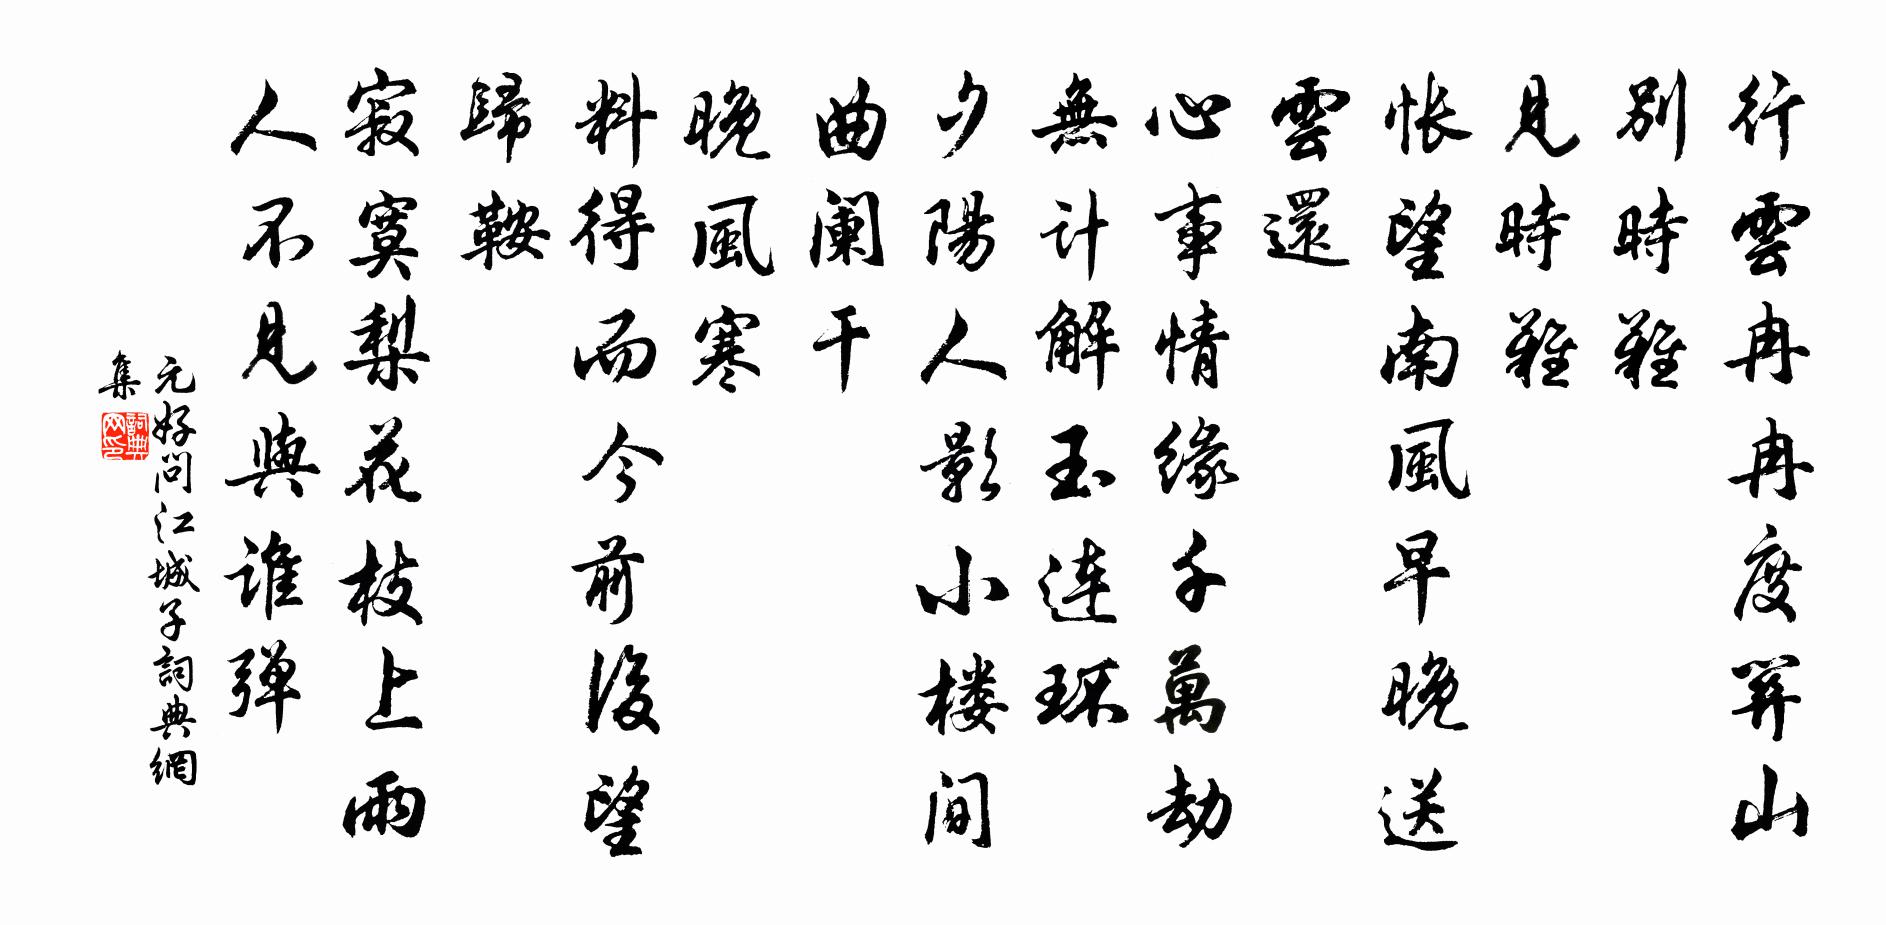 行雲冉冉度関山
別時難
見時難
悵望南風早晚送
雲還
心事情緣千萬劫
無計解玉連環
夕陽人影小楼间
曲闌干
晚風寒
料得而今前後望
歸鞍
寂寞梨花枝上雨
人不見與谁弹
元好问江城子詞典網
集
詞典
网印